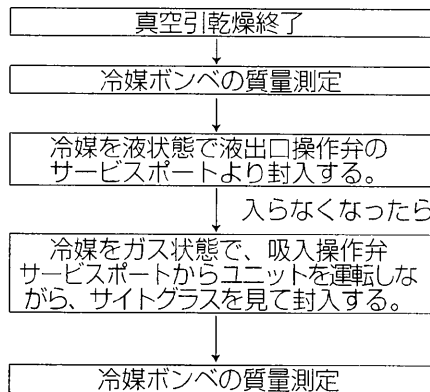 真空引乾燥終了
冷媒ボンベの質量測定
冷媒を液状態で液出口操作弁の
サービスポートより封入する。
入らなくなったら
冷媒をガス状態で、吸入操作弁
サービスポートからユニットを運転しな
がら、サイトグラスを見て封入する。
冷媒ボンベの質量測定